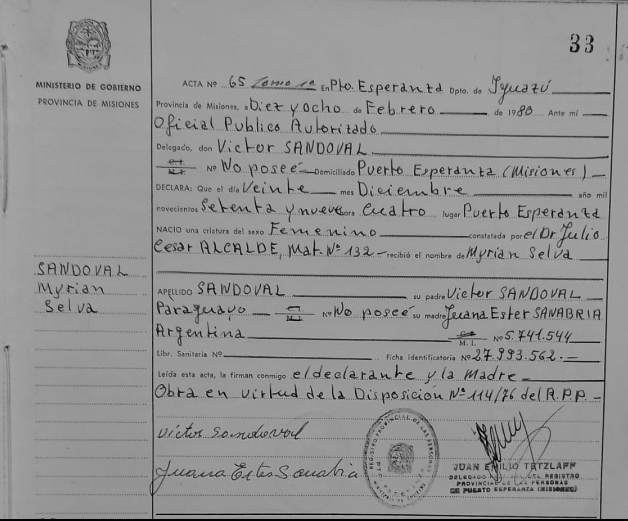 33
MINISTERIO DE GOBIERNO
PROVINCIA DE MISIONES
SANDOVAL
Myrian
Selva
ACTA Nº 65 Tomo 1º En Pto. Esperanza Dpto. de Iguazú
Provincia de Misiones, a Diez y ocho de Febrero de 1980 Ante mi
Oficial Publico Autorizado
Delegado, don Victor SANDOVAL
Nº No poseé Domiciliado Puerto Esperanza (Misiones)
DECLARA: Que el día Veinte mes Diciembre año mil
novecientos Setenta y nueve hora Cuatro lugar Puerto Esperanza
NACIO una criatura del sexo Femenino constatada por el Dr Julio
Cesar ALCALDE, Mat. Nº 132.- recibió el nombre de Myrian Selva
APELLIDO SANDOVAL su padre Victor SANDOVAL
Paraguayo Nº No poseé su madre Juana Ester SANABRIA
Argentina M. I. Nº 5.741.544
Libr. Sanitaria Nº ficha identificatoria Nº 27.993.562.-
Leída esta acta, la firman conmigo el declarante y la Madre -
Obra en virtud de la Disposición Nº 114/76 del R.P.P. -
Victor Sandoval
Juana Ester Sanabria
REGISTRO PROVINCIAL DE LAS PERSONAS
JUAN EMILIO TETZLAFF
DELEGADO DEL REGISTRO
PROVINCIAL DE LAS PERSONAS
DE PUERTO ESPERANZA (MISIONES)